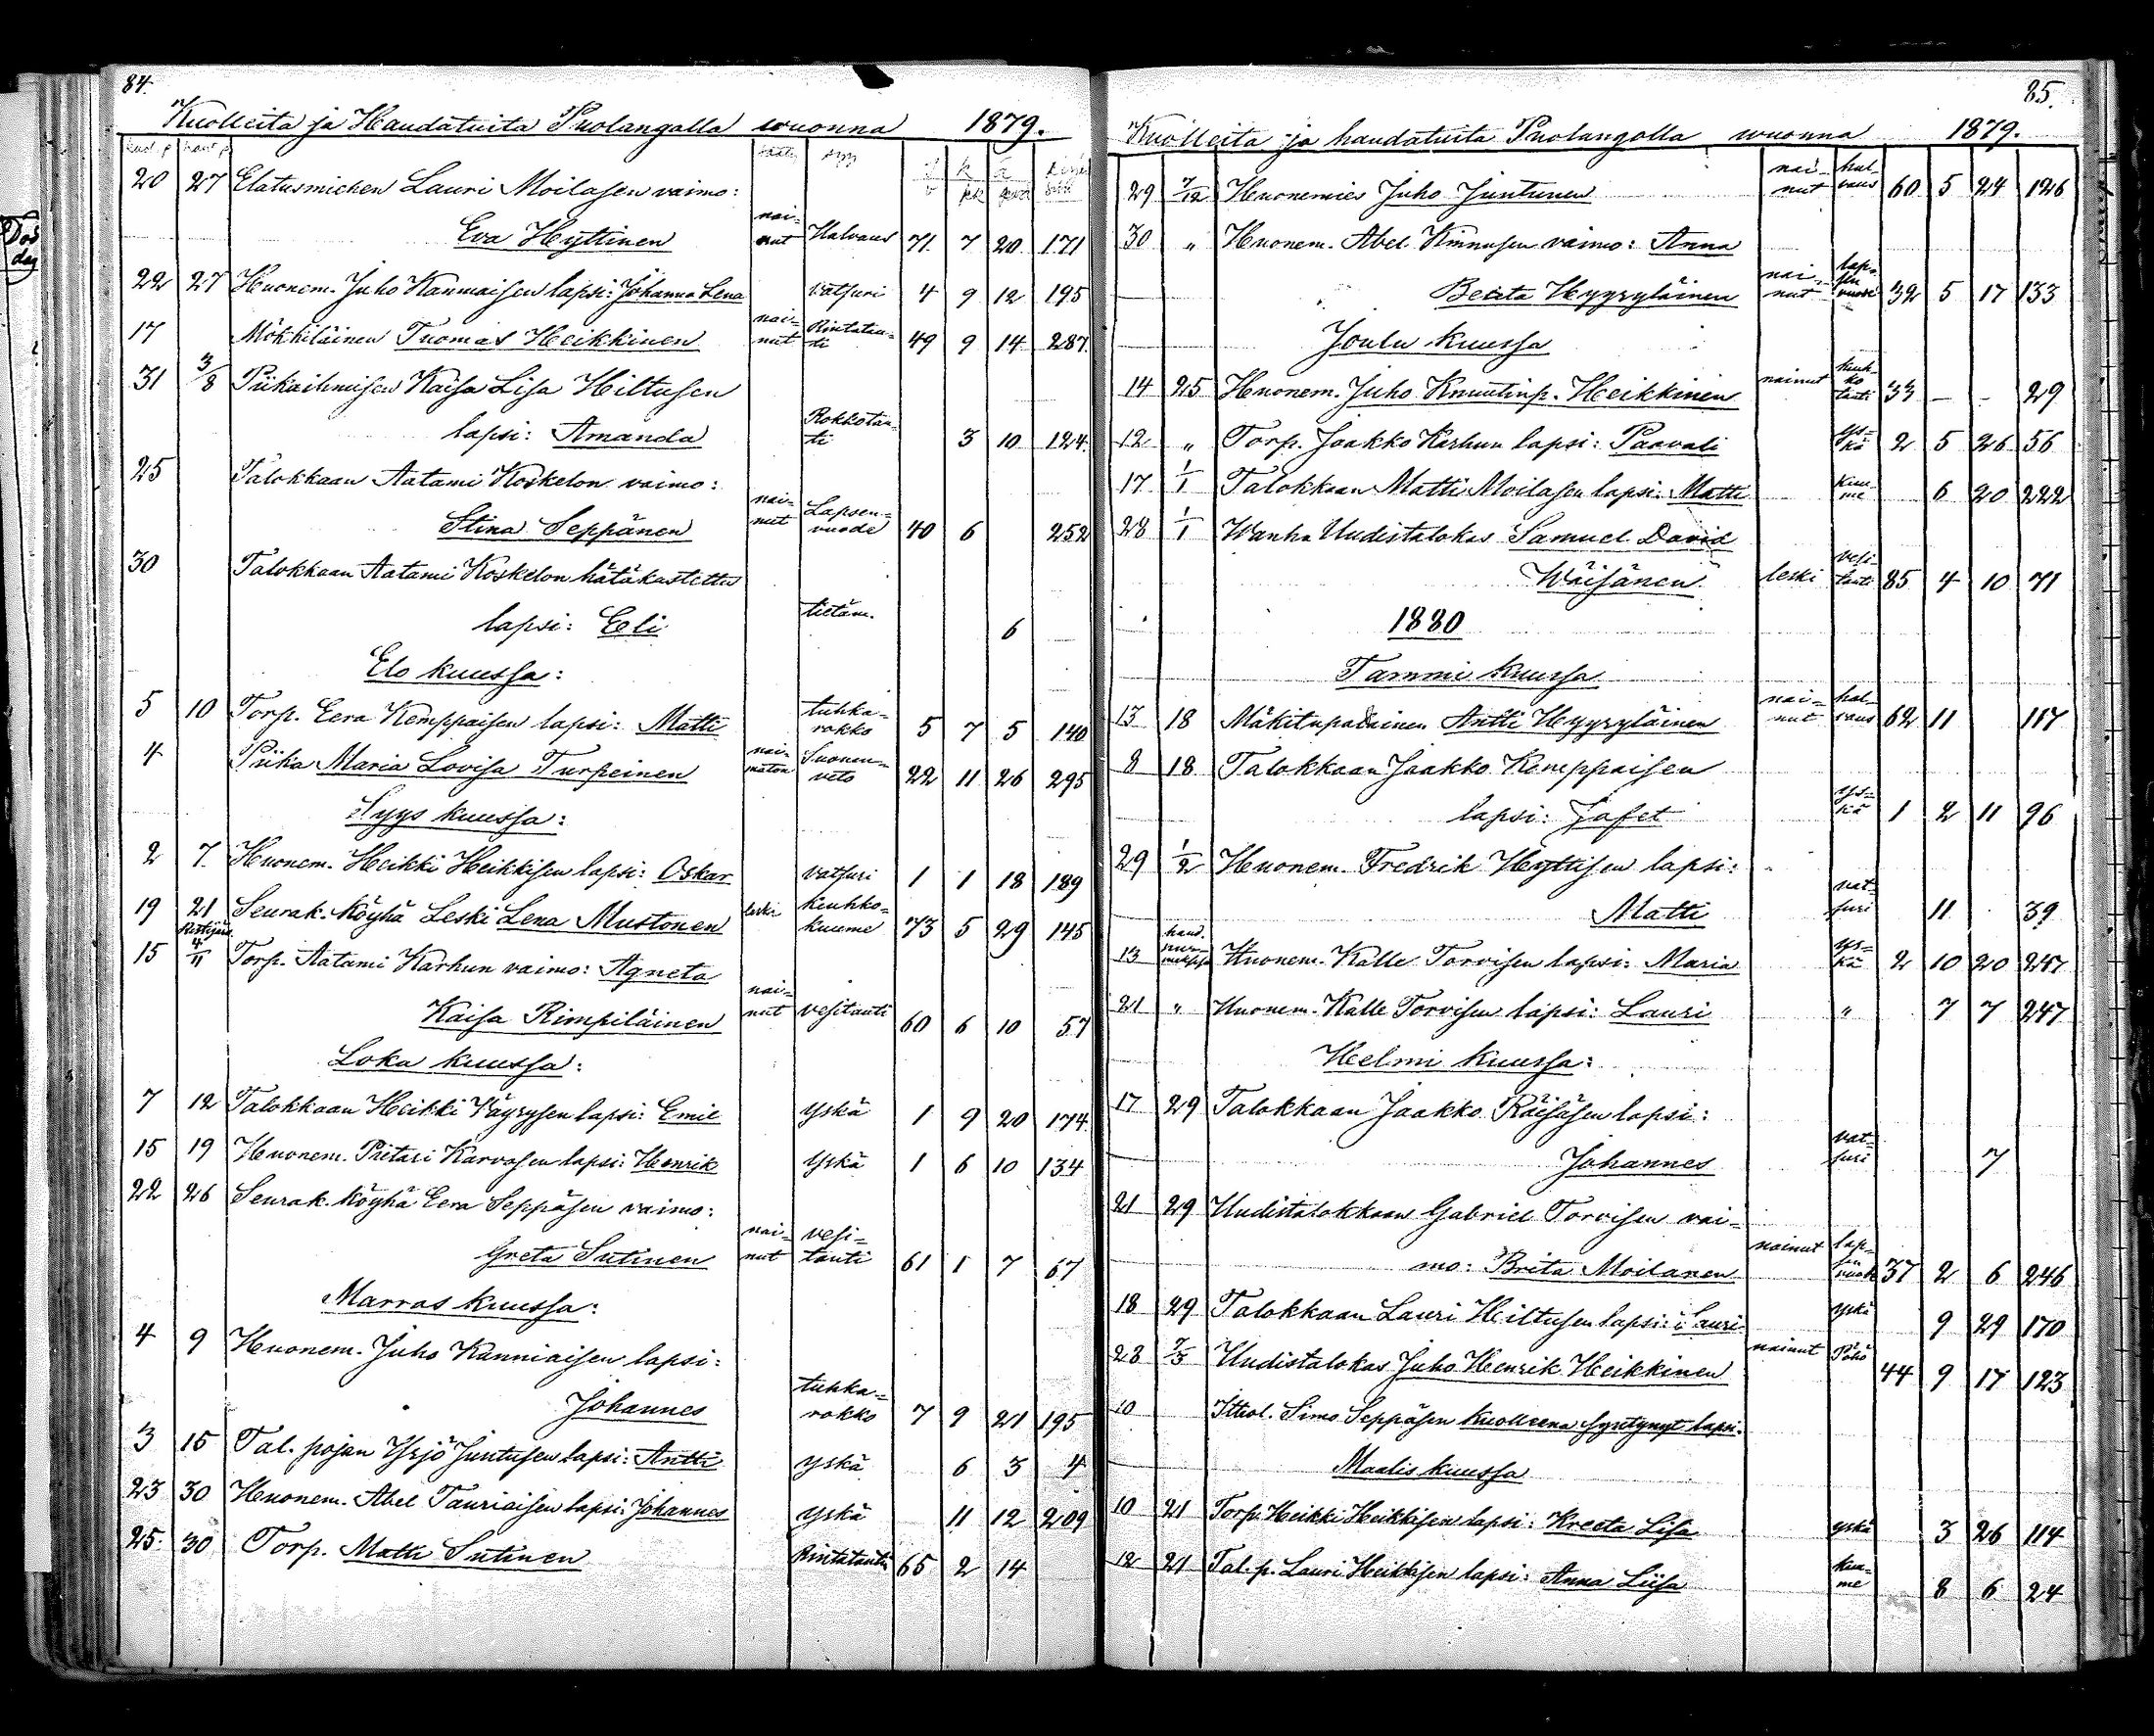 84.
Kuolleita ja Haudatuita Puolangalla wuonna 1879.
20 27 Elatusmiehen Lauri Moilasen vaimo:
Eva Hyttinen nai=nut Halvaus 71 7 20 171
22 27 Huonem. Juho Kanniaisen lapsi: Johanna Lena vatsuri 4 9 12 195
17 Mökkiläinen Tuomas Heikkinen nai=nut Rintatau=ti 49 9 14 287.
31 3/8 Piikaihmisen Kaisa Lisa Hiltusen
lapsi: Amanda Rokkotau=ti 3 10 124.
25 Talokkaan Aatami Koskelon vaimo:
Stina Seppänen nai=nut Lapsen=vuode 40 6 252
30 Talokkaan Aatami Koskelon hätäkastettu
lapsi: Eeli tietäm. 6
Elo kuussa:
5 10 Torp. Eera Kemppaisen lapsi: Matti tuhka=rokko 5 7 5 140
4 Piika Maria Lovisa Turpeinen nai=maton Suonen=veto 22 11 26 295
Syys kuussa:
2 7. Huonem. Heikki Heikkisen lapsi: Oskar vatsuri 1 1 18 189
19 21 Seurak. köyhä Leski Lena Mustonen leski keuhko=kuume 73 5 29 145
15 4/11 Torp. Aatami Karhun vaimo: Agneta
Kaisa Rimpiläinen nai=nut vesitauti 60 6 10 57
Loka kuussa:
7 12 Talokkaan Heikki Väyrysen lapsi: Emil yskä 1 9 20 174
15 19 Huonem. Pietari Karvosen lapsi: Henrik yskä 1 6 10 134
22 26 Seurak. köyhä Eera Seppäsen vaimo:
Greta Sutinen nai=nut vesi=tauti 61 1 7 67
Marras kuussa:
4 9 Huonem. Juho Kanniaisen lapsi:
Johannes tuhka=rokko 7 9 21 195
3 15 Tal. pojan Yrjö Juntusen lapsi: Antti yskä 6 3 4
23 30 Huonem. Abel Tauriaisen lapsi: Johannes yskä 11 12 209
25. 30 Torp. Matti Sutinen Rintatauti 65 2 14
85.
Kuolleita ja haudatuita Puolangolla wuonna 1879.
29 7/12 Huonemies Juho Juntunen nai=nut hal=vaus 60 5 24 126
30 " Huonem. Abel Kinnusen vaimo: Anna
Beata Hyyryläinen nai=nut lap=sen vuode 32 5 17 133
Joulu kuussa
14 25 Huonem. Juho Knuutinp. Heikkinen nainut keuh=ko tauti 33 - - 29
12 " Torp. Jaakko Karhun lapsi: Paavali ys=kä 2 5 26 56
17 1/1 Talokkaan Matti Moilasen lapsi: Matti kuu=me 6 20 222
28 1/1 Wanha Uudistalokas Samuel David
Wäisänen leski vesi tauti 85 4 10 71
1880
Tammi kuussa
13 18 Mäkitupalainen Antti Hyyryläinen nai=nut hal=vaus 62 11 117
8 18 Talokkaan Jaakko Kemppaisen
lapsi: Jafet ys=kä 1 2 11 96
29 1/2 Huonem. Fredrik Hyttisen lapsi:
Matti vat=suri 11 39
13 Huonem. Kalle Torvisen lapsi: Maria ys=kä 2 10 20 247
21 " Huonem. Kalle Torvisen lapsi: Lauri " 7 7 247
Helmi kuussa:
17 29 Talokkaan Jaakko Räisäsen lapsi:
Johannes vat=suri 7
21 29 Uudistalokkaan Gabriel Torvisen vai=
mo: Brita Moilanen nainut lap=sen vuode 37 2 6 246
18 29 Talokkaan Lauri Hiltusen lapsi: Lauri yskä 9 29 170
28 7/3 Uudistalokas Juho Henrik Heikkinen nainut Pöhö 44 9 17 123
10 Ittel. Simo Seppäsen kuolleena syntynyt lapsi.
Maalis kuussa
10 21 Torp. Heikki Heikkisen lapsi: Kreeta Lisa yskä 3 26 114
12 21 Tal. p. Lauri Heikkisen lapsi: Anna Liisa kuu=me 8 6 24